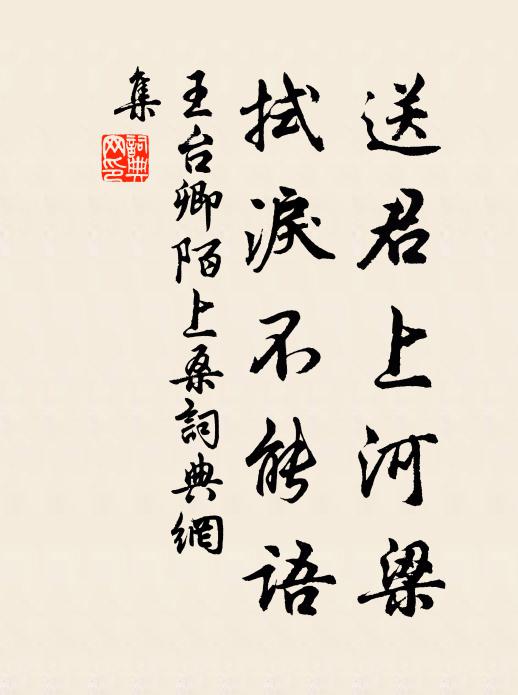 送君上河梁
拭淚不能語
王台卿陌上桑詞典網
集
詞典
网印